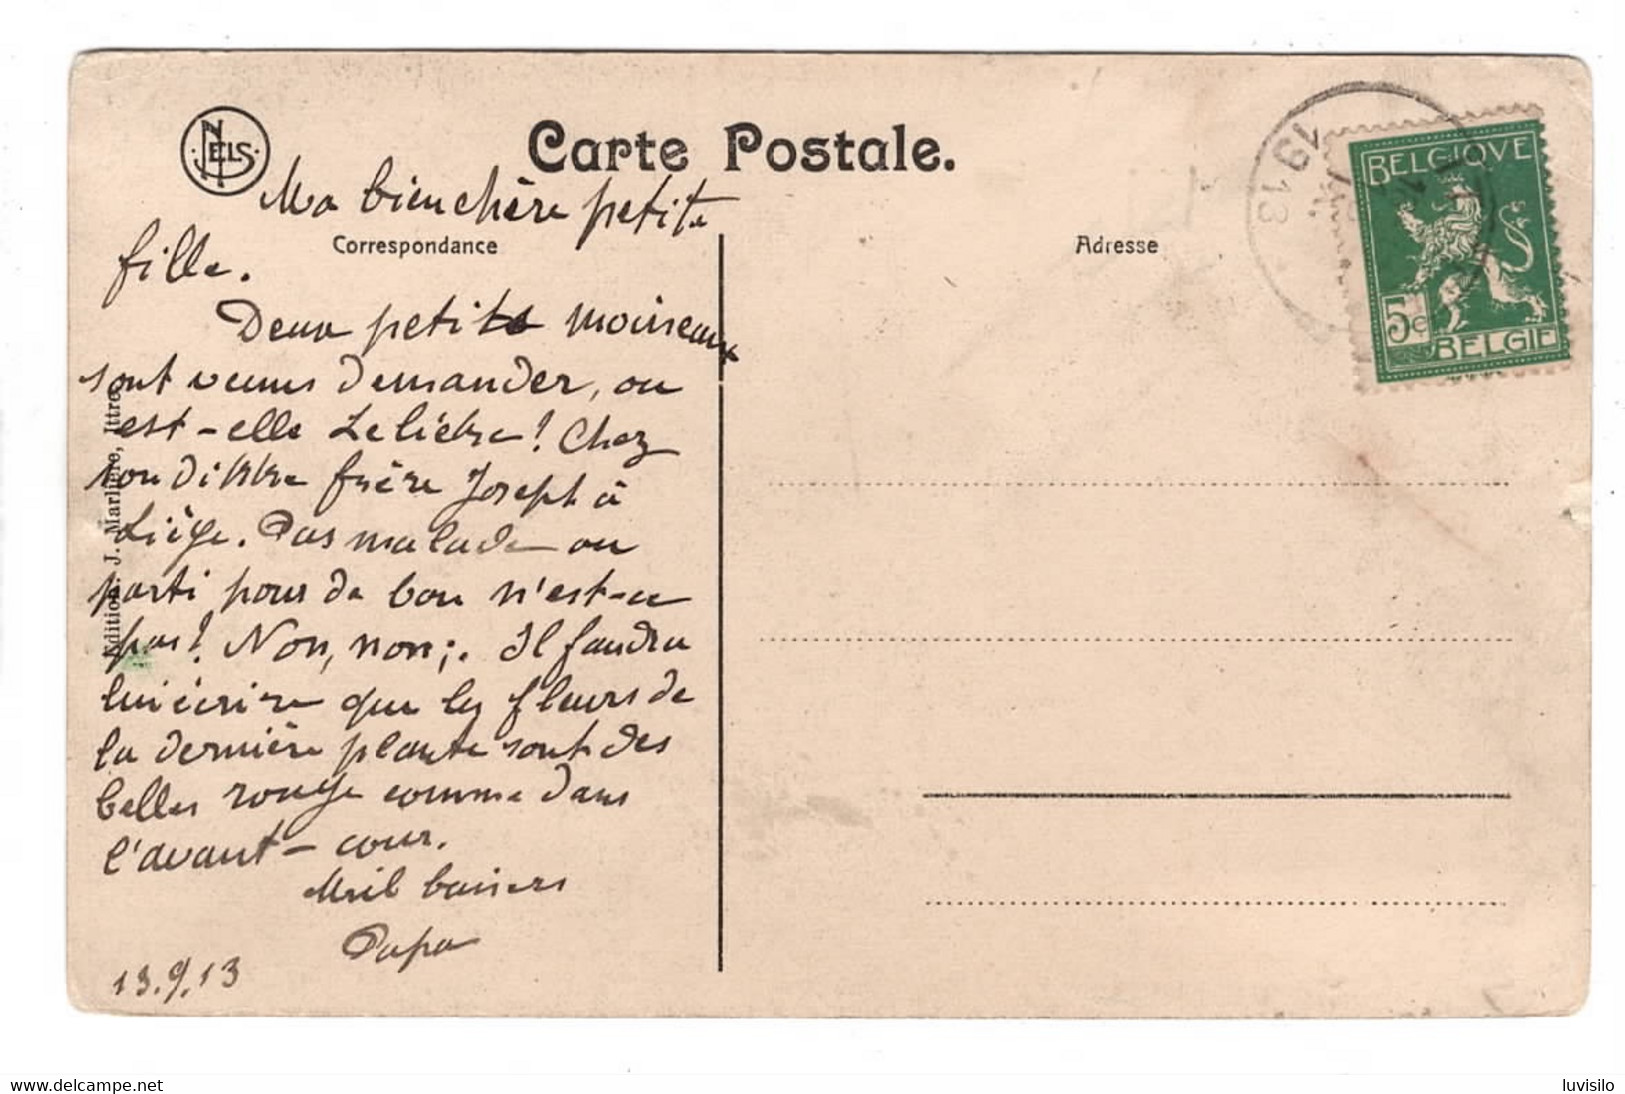 NELS
Carte Postale.
Ma bien chère petite
Correspondance
Adresse
fille.
Deux petits moineaux
sont venus demander, ou
est-elle Le liebre! Chez
son frère Joseph à
Liège. Pas malade ou
parti pour de bon n'est-ce
pas? Non, non;. Il faudra
lui écrire que les fleurs de
la dernière plante sont des
belles rouge comme dans
l'avant-cour.
Mil baisers
Papa
13.9.13
Edition: J. Marlière, Ittre.
1913
BELGIQUE
5c
BELGIË
delcampe.net
luvisilo